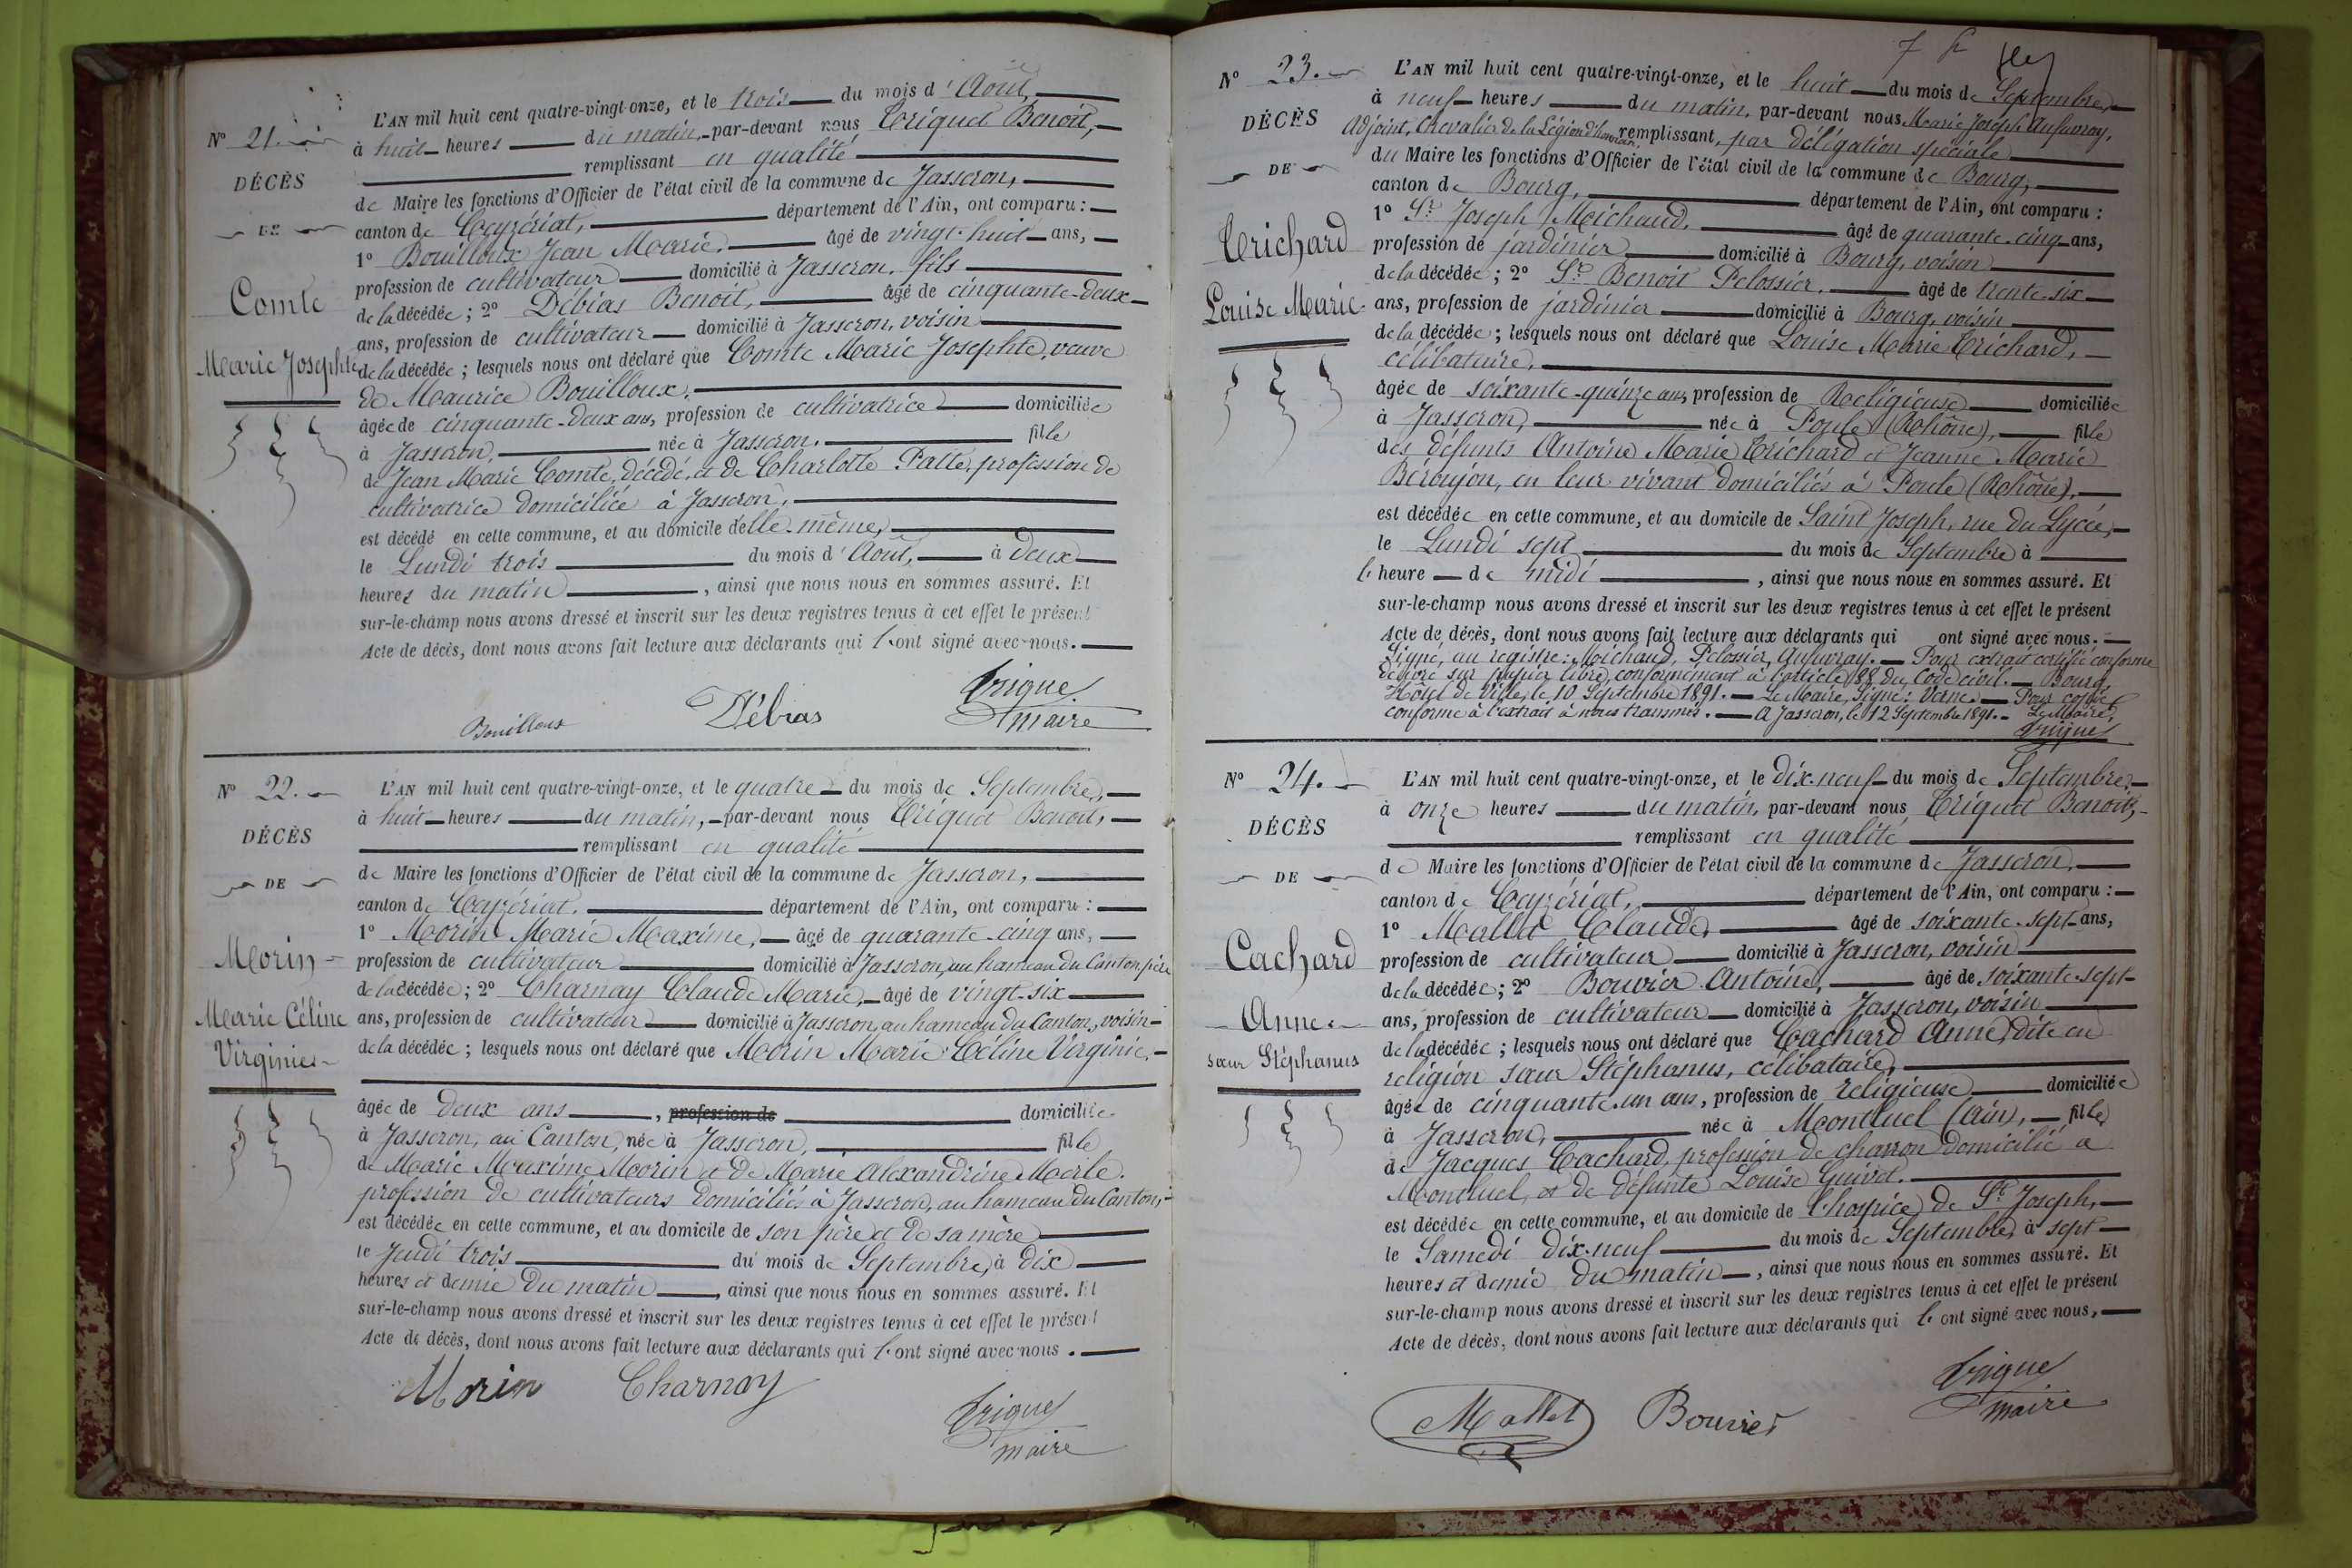 N° 21.
DÉCÈS
DE
Comte
Marie Josephte
L'AN mil huit cent quatre-vingt-onze, et le trois du mois d'Août,
à huit heures du matin, par-devant nous Triquet Benoit,
remplissant en qualité
de Maire les fonctions d'Officier de l'état civil de la commune de Jasseron,
canton de Ceyzériat, département de l'Ain, ont comparu :
1° Bouilloux Jean Marie, âgé de vingt-huit ans,
profession de cultivateur domicilié à Jasseron, fils
de la décédée ; 2° Débias Benoit, âgé de cinquante-deux
ans, profession de cultivateur domicilié à Jasseron, voisin
de la décédée ; lesquels nous ont déclaré que Comte Marie Josephte, veuve
de Maurice Bouilloux,
âgée de cinquante-deux ans, profession de cultivatrice domiciliée
à Jasseron, née à Jasseron, fille
de Jean Marie Comte, décédé, et de Charlotte Patte, profession de
cultivatrice domiciliée à Jasseron,
est décédé en cette commune, et au domicile d'elle-même,
le Lundi trois du mois d'Août, à deux
heures du matin, ainsi que nous nous en sommes assuré. Et
sur-le-champ nous avons dressé et inscrit sur les deux registres tenus à cet effet le présent
Acte de décès, dont nous avons fait lecture aux déclarants qui l'ont signé avec nous.
Bouilloux Débias Triquet
maire
N° 22.
DÉCÈS
DE
Morin
Marie Céline
Virginie
L'AN mil huit cent quatre-vingt-onze, et le quatre du mois de Septembre,
à huit heures du matin, par-devant nous Triquet Benoit,
remplissant en qualité
de Maire les fonctions d'Officier de l'état civil de la commune de Jasseron,
canton de Ceyzériat, département de l'Ain, ont comparu :
1° Morin Marie Maxime, âgé de quarante-cinq ans,
profession de cultivateur domicilié à Jasseron, au hameau du Canton, père
de la décédée ; 2° Charnay Claude Marie, âgé de vingt-six
ans, profession de cultivateur domicilié à Jasseron, au hameau du Canton, voisin
de la décédée ; lesquels nous ont déclaré que Morin Marie Céline Virginie,
âgée de deux ans, profession de domiciliée
à Jasseron, au Canton, née à Jasseron, fille
de Marie Maxime Morin et de Marie Alexandrine Merle,
profession de cultivateurs domiciliés à Jasseron, au hameau du Canton,
est décédée en cette commune, et au domicile de son père et de sa mère
le Jeudi trois du mois de Septembre, à dix
heures et demie du matin, ainsi que nous nous en sommes assuré. Et
sur-le-champ nous avons dressé et inscrit sur les deux registres tenus à cet effet le présent
Acte de décès, dont nous avons fait lecture aux déclarants qui l'ont signé avec nous.
Morin Charnay Triquet
maire
N° 23.
DÉCÈS
DE
Trichard
Louise Marie
L'AN mil huit cent quatre-vingt-onze, et le huit du mois de Septembre,
à neuf heures du matin, par-devant nous Marie Joseph Aufauvray,
Adjoint, Chevalier de la Légion d'honneur, remplissant, par délégation spéciale
du Maire les fonctions d'Officier de l'état civil de la commune de Bourg,
canton de Bourg, département de l'Ain, ont comparu :
1° Sr Joseph Moichaud, âgé de quarante-cinq ans,
profession de jardinier domicilié à Bourg, voisin
de la décédée ; 2° Sr Benoit Pelossier, âgé de trente-six
ans, profession de jardinier domicilié à Bourg, voisin
de la décédée ; lesquels nous ont déclaré que Louise Marie Trichard,
célibataire,
âgée de soixante-quinze ans, profession de Religieuse domiciliée
à Jasseron, née à Poule (Rhône), fille
des défunts Antoine Marie Trichard et Jeanne Marie
Béroujon, en leur vivant domiciliés à Poule (Rhône),
est décédée en cette commune, et au domicile de Saint Joseph, rue du Lycée,
le Lundi sept du mois de Septembre à
l'heure de midi, ainsi que nous nous en sommes assuré. Et
sur-le-champ nous avons dressé et inscrit sur les deux registres tenus à cet effet le présent
Acte de décès, dont nous avons fait lecture aux déclarants qui ont signé avec nous.
Signé, au registre : Moichaud, Pelossier, Aufauvray. Pour extrait certifié conforme
délivré sur papier libre, conformément à l'article 88 du Code civil. Bourg,
Hôtel de Ville, le 10 Septembre 1891. Le Maire, Signé : Verne. Pour copie
conforme à l'extrait à nous transmis. A Jasseron, le 12 Septembre 1891. Le Maire,
Triquet
N° 24.
DÉCÈS
DE
Cachard
Anne
sœur Stéphanus
L'AN mil huit cent quatre-vingt-onze, et le dix-neuf du mois de Septembre,
à onze heures du matin, par-devant nous Triquet Benoit,
remplissant en qualité
de Maire les fonctions d'Officier de l'état civil de la commune de Jasseron,
canton de Ceyzériat, département de l'Ain, ont comparu :
1° Mallet Claude, âgé de soixante-sept ans,
profession de cultivateur domicilié à Jasseron, voisin
de la décédée ; 2° Bouvier Antoine, âgé de soixante-sept
ans, profession de cultivateur domicilié à Jasseron, voisin
de la décédée ; lesquels nous ont déclaré que Cachard Anne, dite en
religion sœur Stéphanus, célibataire,
âgée de cinquante-un ans, profession de religieuse domiciliée
à Jasseron, née à Montluel (Ain), fille
de Jacques Cachard, profession de charron domicilié à
Montluel, et de défunte Louise Guivet,
est décédée en cette commune, et au domicile de l'hospice de St Joseph,
le Samedi dix-neuf du mois de Septembre, à sept
heures et demie du matin, ainsi que nous nous en sommes assuré. Et
sur-le-champ nous avons dressé et inscrit sur les deux registres tenus à cet effet le présent
Acte de décès, dont nous avons fait lecture aux déclarants qui l'ont signé avec nous,
Mallet Bouvier Triquet
maire